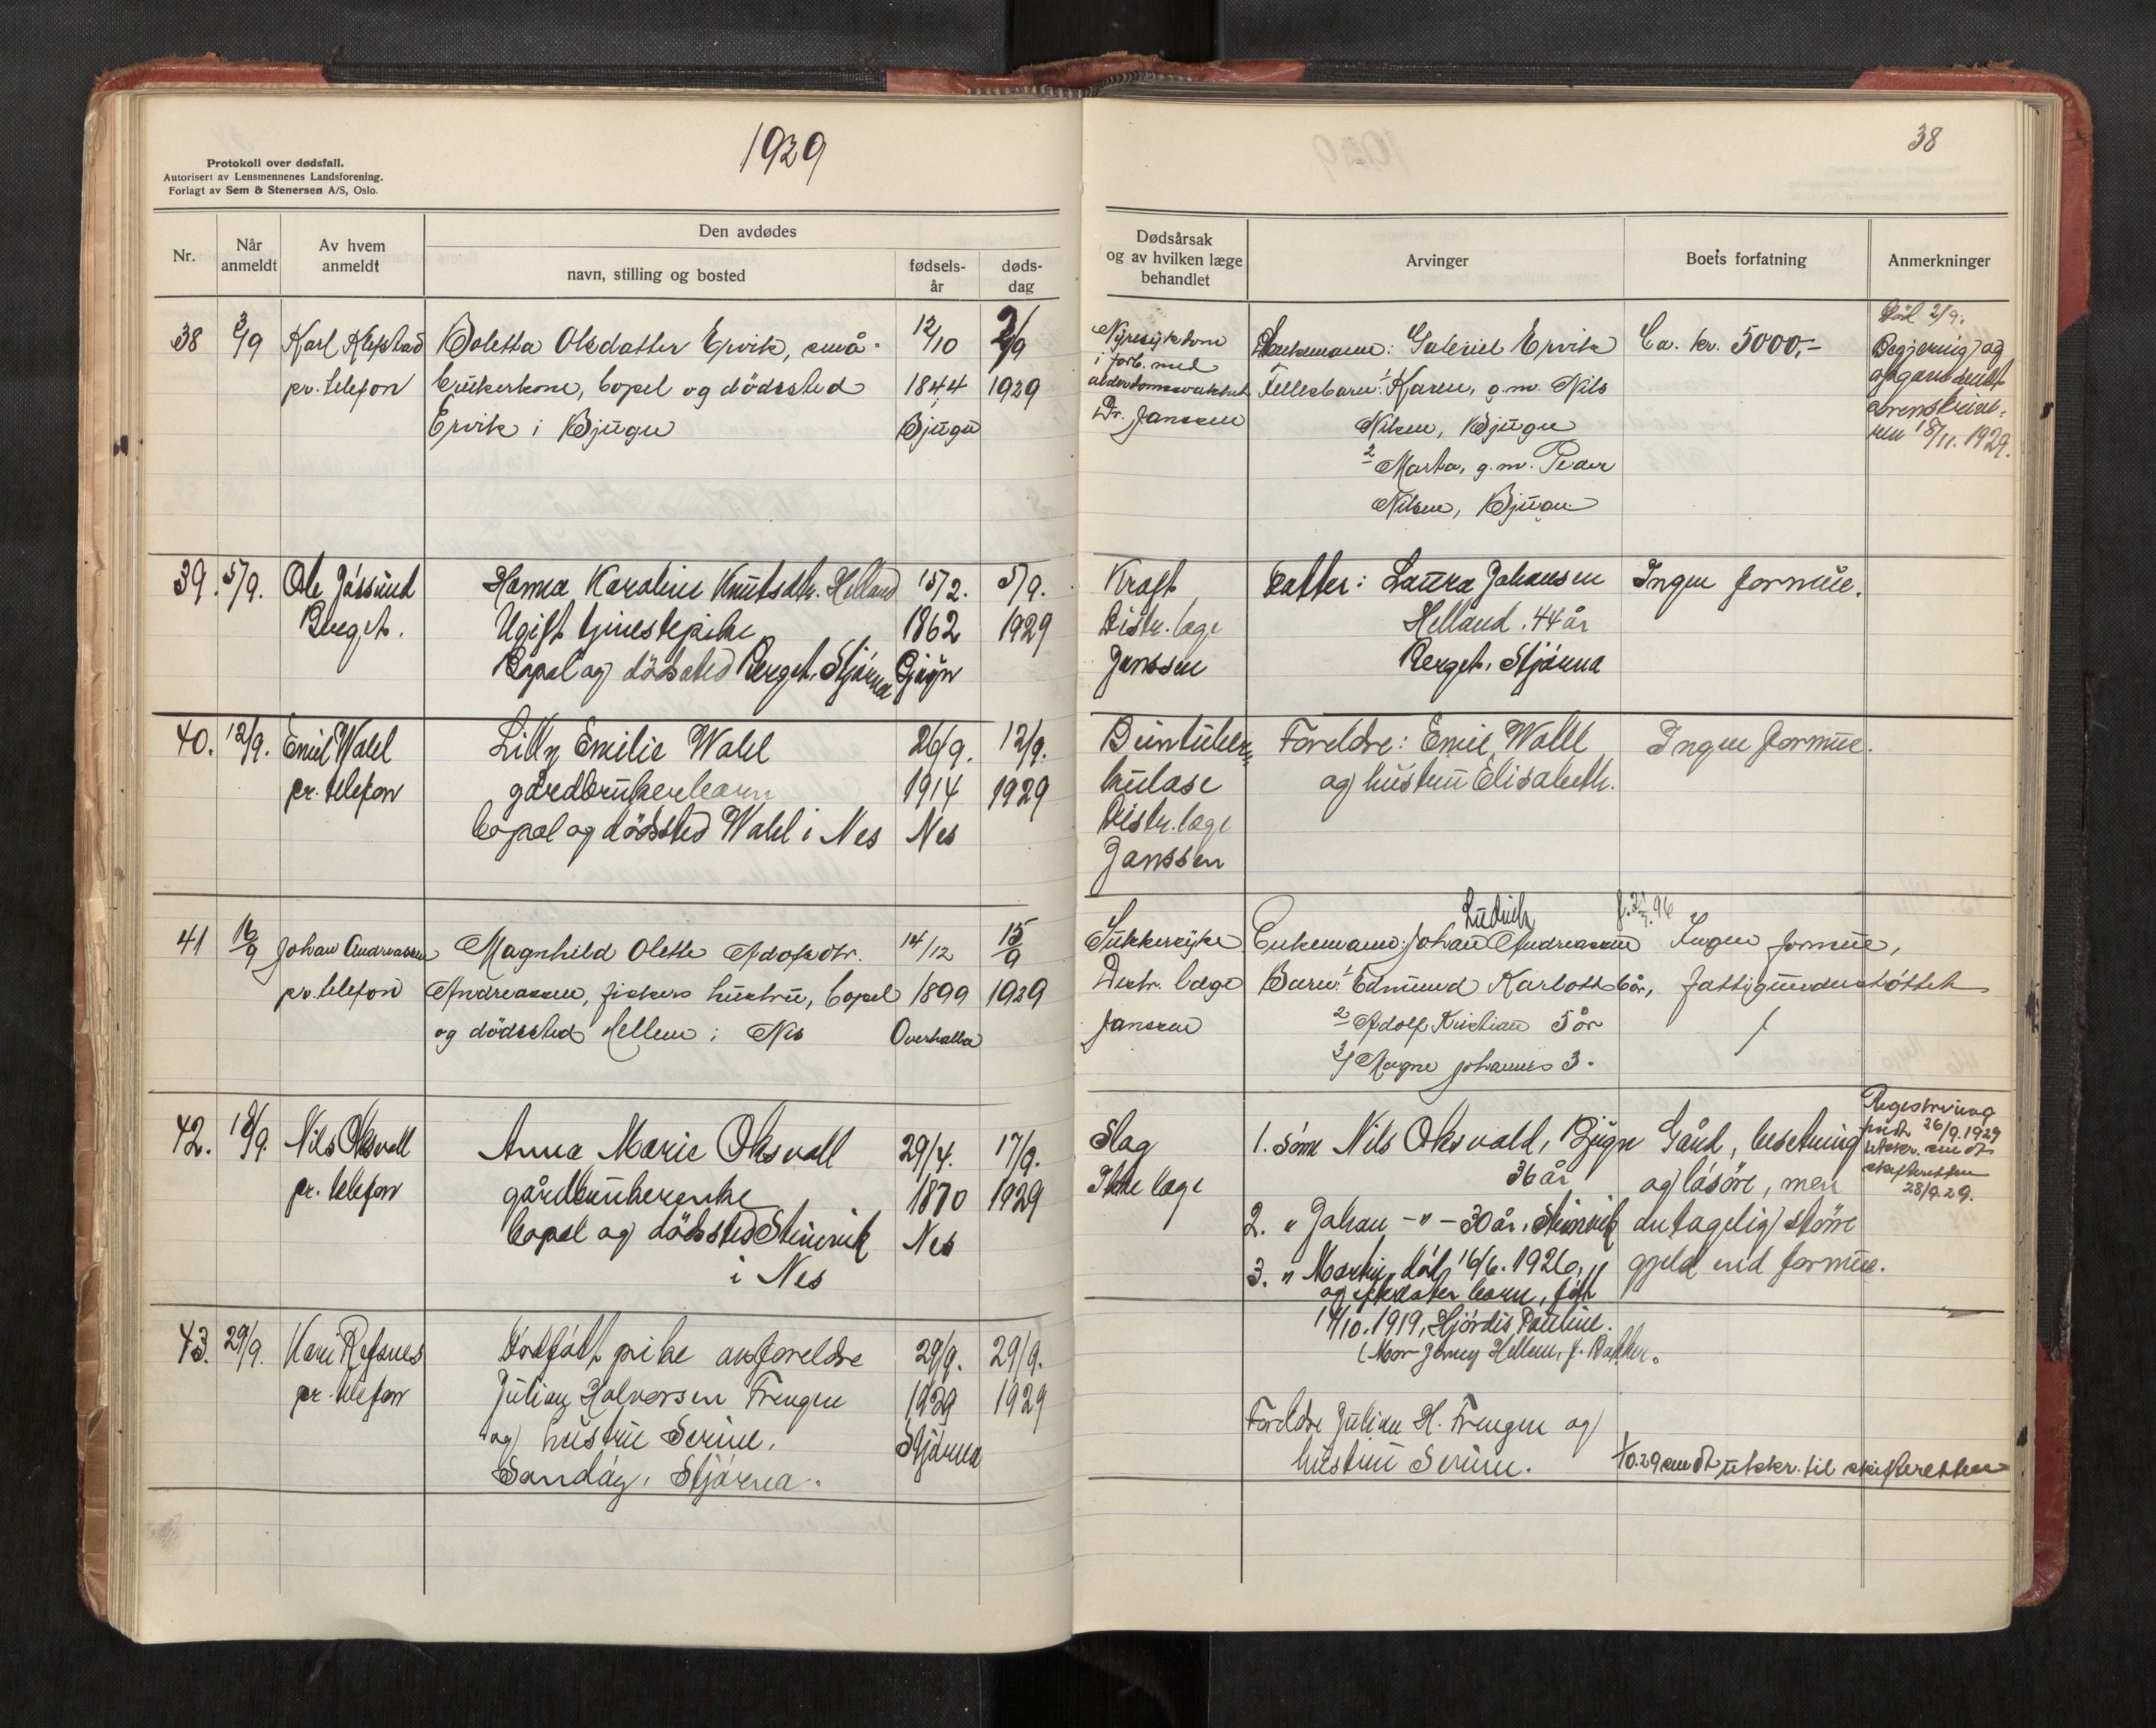 1929
38
Protokoll over dødsfall.
Autorisert av Lensmennenes Landsforening.
Forlagt av Sem & Stenersen A/S, Oslo.
Nr.
Når anmeldt
Av hvem anmeldt
Den avdødes
navn, stilling og bosted
fødsels-år
døds-dag
Dødsårsak og av hvilken læge behandlet
Arvinger
Boets forfatning
Anmerkninger
38 3/9 Karl Klepstad Boletta Olsdatter Ervik, små- 12/10 2/9
pr. telefon brukerkone, bopel og dödssted 1844 1929
Ervik i Bjugn Bjugn
Nyresykdom
i forb. med
alderdomssvakhet
Dr. Janssen
Enkemann: Gabriel Ervik Ca. kr. 5000,-
Fellesbarn: 1 Karen, g.m. Nils
Nilsen, Bjugn
2 Marta, g.m. Peder
Nilsen, Bjugn
2/9.
Begjering og
18/11. 1929.
39. 5/9. Ole Jössund Hanna Karoline Knutsdtr. Helland 15/2. 5/9.
Berget. Ugift tjenestepike 1862 1929
Bopel og dödssted Berget, Stjörna
Kreft Datter: Laura Johansen Ingen formue.
Distr. læge Helland. 44 år
Janssen Berget, Stjörna
40. 12/9. Emil Wahl Lilly Emilie Wahl 26/9. 12/9.
pr. telefon gårdbrukerbarn 1914 1929
bopel og dödssted Wahl i Nes Nes
Bentuber- Foreldre: Emil Wahl Ingen formue.
kulose og hustru Elisabeth.
Distr. læge
Janssen
41 16/9 Johan Andreassen Magnhild Olette Adolfsdtr. 14/12 15/9
pr. telefon Andreassen, fiskers hustru, bopel 1899 1929
og dödssted Hellem i Nes Overhalla
Ludvik
Sukkersyke Enkemann: Johan Andreassen Ingen formue,
Distr. læge Barn: 1 Edmund Karlott 6 år, fattigunderstöttet
Janssen 2 Adolf Kristian 5 år
3/ Magne Johannes 3.
42. 18/9. Nils Oksvoll Anna Marie Oksvoll 29/4. 17/9.
pr. telefon gårdbrukerenke 1870 1929
bopel og dödssted Steinvik Nes
i Nes
Slag 1. sönn Nils Oksvold, Bjugn Gård, besetning
Ikke læge 36 år og lösöre, men
2. " Johan -"- 30 år, Steinvik antagelig större
3. " Martin, död 16/6. 1926, gjeld end formue.
og efterlater barn, föd
14/10. 1919, Hjördis Pauline.
(Mor Jenny Hellem, f. Bakken.
Registrering
26/9.1929
utskr. sendt
skifteretten
28/9.29.
43. 29/9. Refsnes Dödfödt pike av foreldre 29/9. 29/9.
pr. telefon Julian Halvorsen Frengen 1929 1929
og hustru Serine. Stjörna
Sandöy, Stjörna.
Foreldre Julian H. Frengen og
hustru Serine.
1/10.29 sendt utskr. til skifteretten